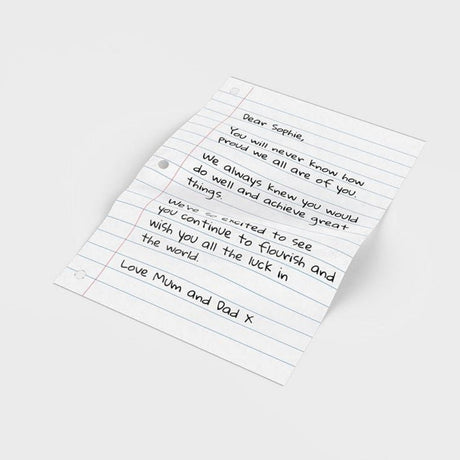 Dear Sophie,
You will never know how
proud we all are of you.
We always knew you would
do well and achieve great
things.
We're so excited to see
you continue to flourish and
wish you all the luck in
the world.
Love Mum and Dad x